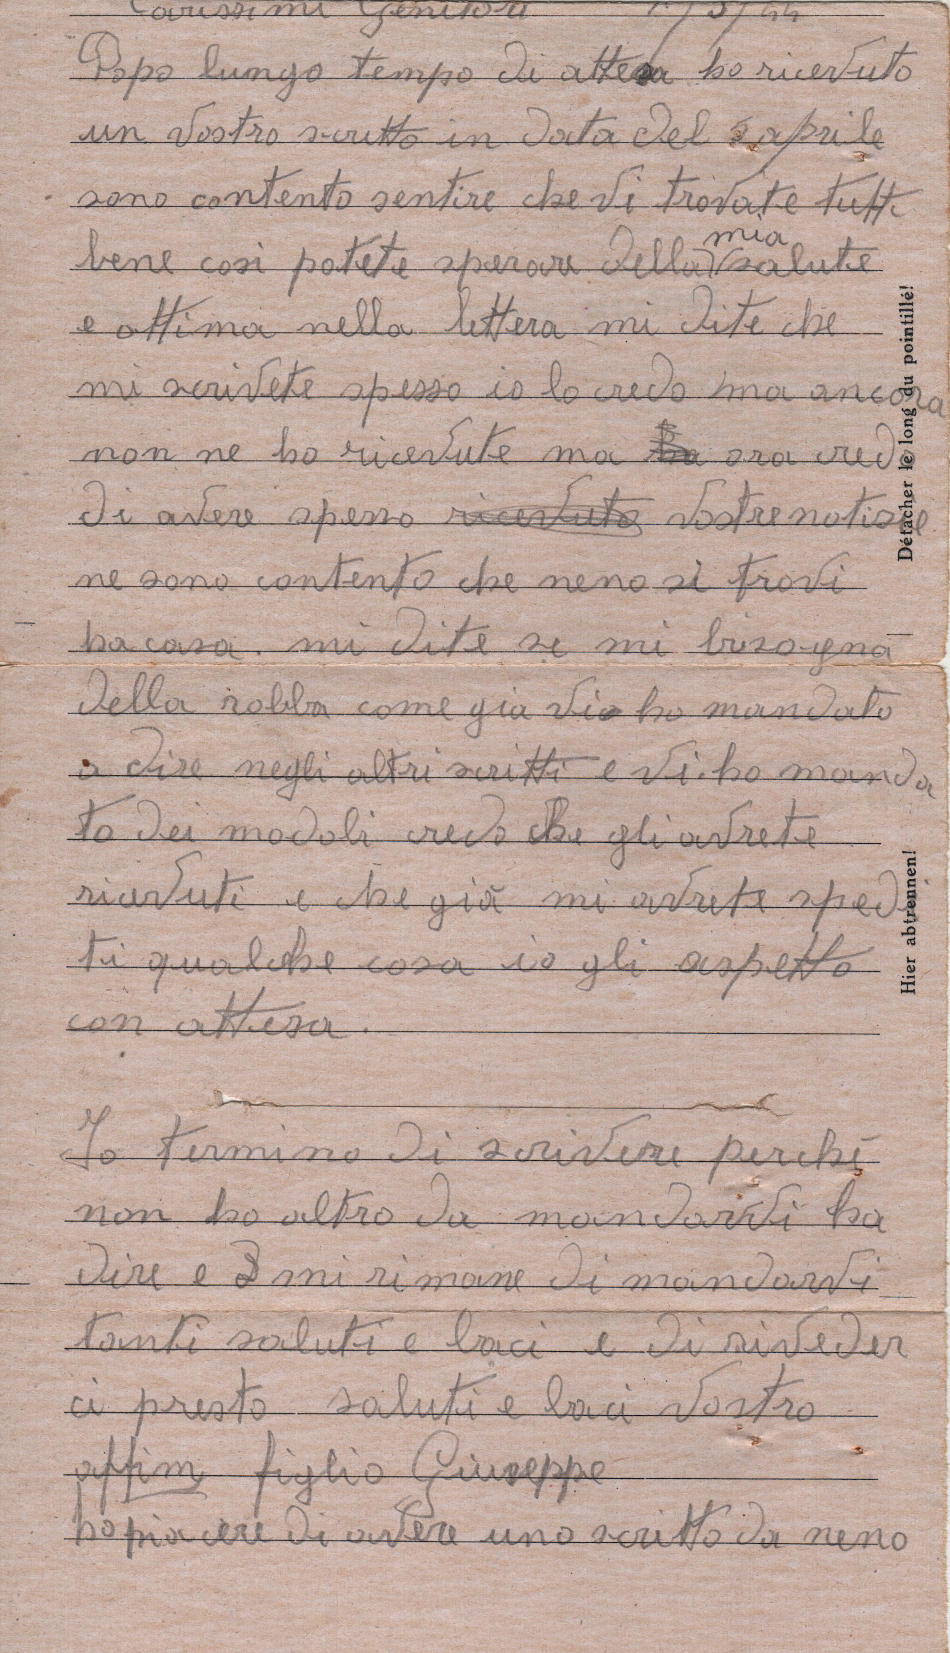 Carissimi Genitori 1/5/44
Dopo lungo tempo di attesa ho ricevuto
un vostro scritto in data del 5 aprile
sono contento sentire che vi trovate tutti
bene cosi potete sperare della mia salute
e ottima nella lettera mi dite che
mi scrivete spesso io lo credo ma ancora
non ne ho ricevute ma ora credo
di avere spesso ricevuto vostre notisie
ne sono contento che neno si trovi
ha casa. mi dite se mi bisogna
della robba come gia vi ho mandato
a dire negli altri scritti e vi ho manda
to dei modoli credo che gli avrete
ricevuti e che già mi avrete spedi
ti qualche cosa io gli aspetto
con attesa.
Io termino di scrivere perché
non ho altro da mandarvi ha
dire e mi rimane di mandarvi
tanti saluti e baci e di riveder
ci presto saluti e baci vostro
affim figlio Giuseppe
ho piacere di avere uno scritto da neno
Détacher le long du pointillé!
Hier abtrennen!